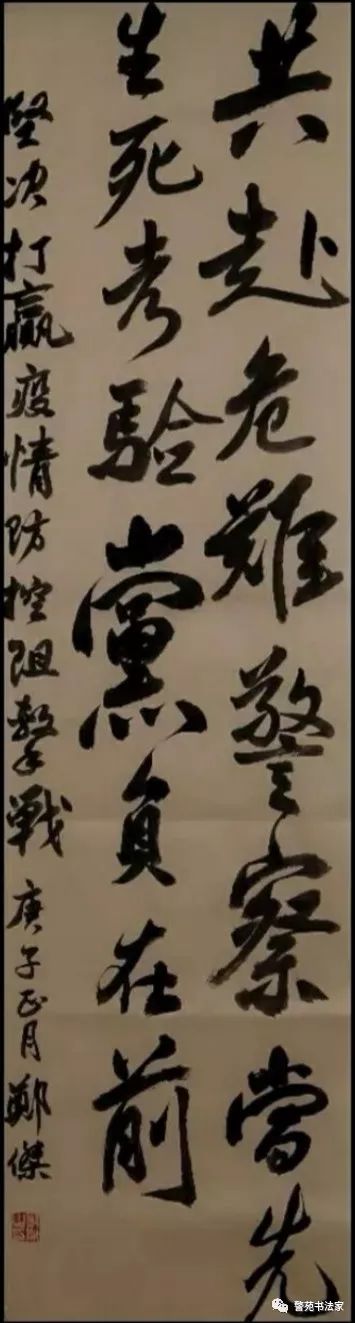 共赴危難警察當先
生死考驗黨員在前
堅决打贏疫情防控阻擊戰 庚子正月 鄭傑
警苑书法家